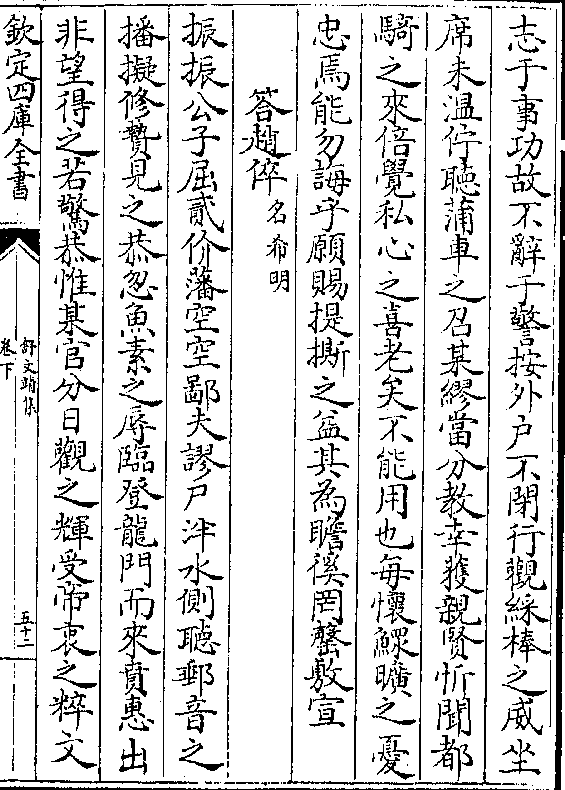 志于事功故不辭于警按外戶不閉行觀綵棒之威坐
席未溫佇聽蒲車之召某繆當分教幸獲親賢忻聞都
騎之來倍覺私心之喜老矣不能用也每懷鰥曠之憂
忠焉能勿誨乎願賜提撕之益其為瞻徯罔罄敷宣
答趙倅名希明
振振公子屈貳价藩空空鄙夫謬尸泮水側聽郵音之
播擬修贄見之恭忽魚素之辱臨登龍門而來賁惠出
非望得之若驚恭惟某官分日觀之輝受帝衷之粹文
欽定四庫全書
舒文靖集
卷下
五十二